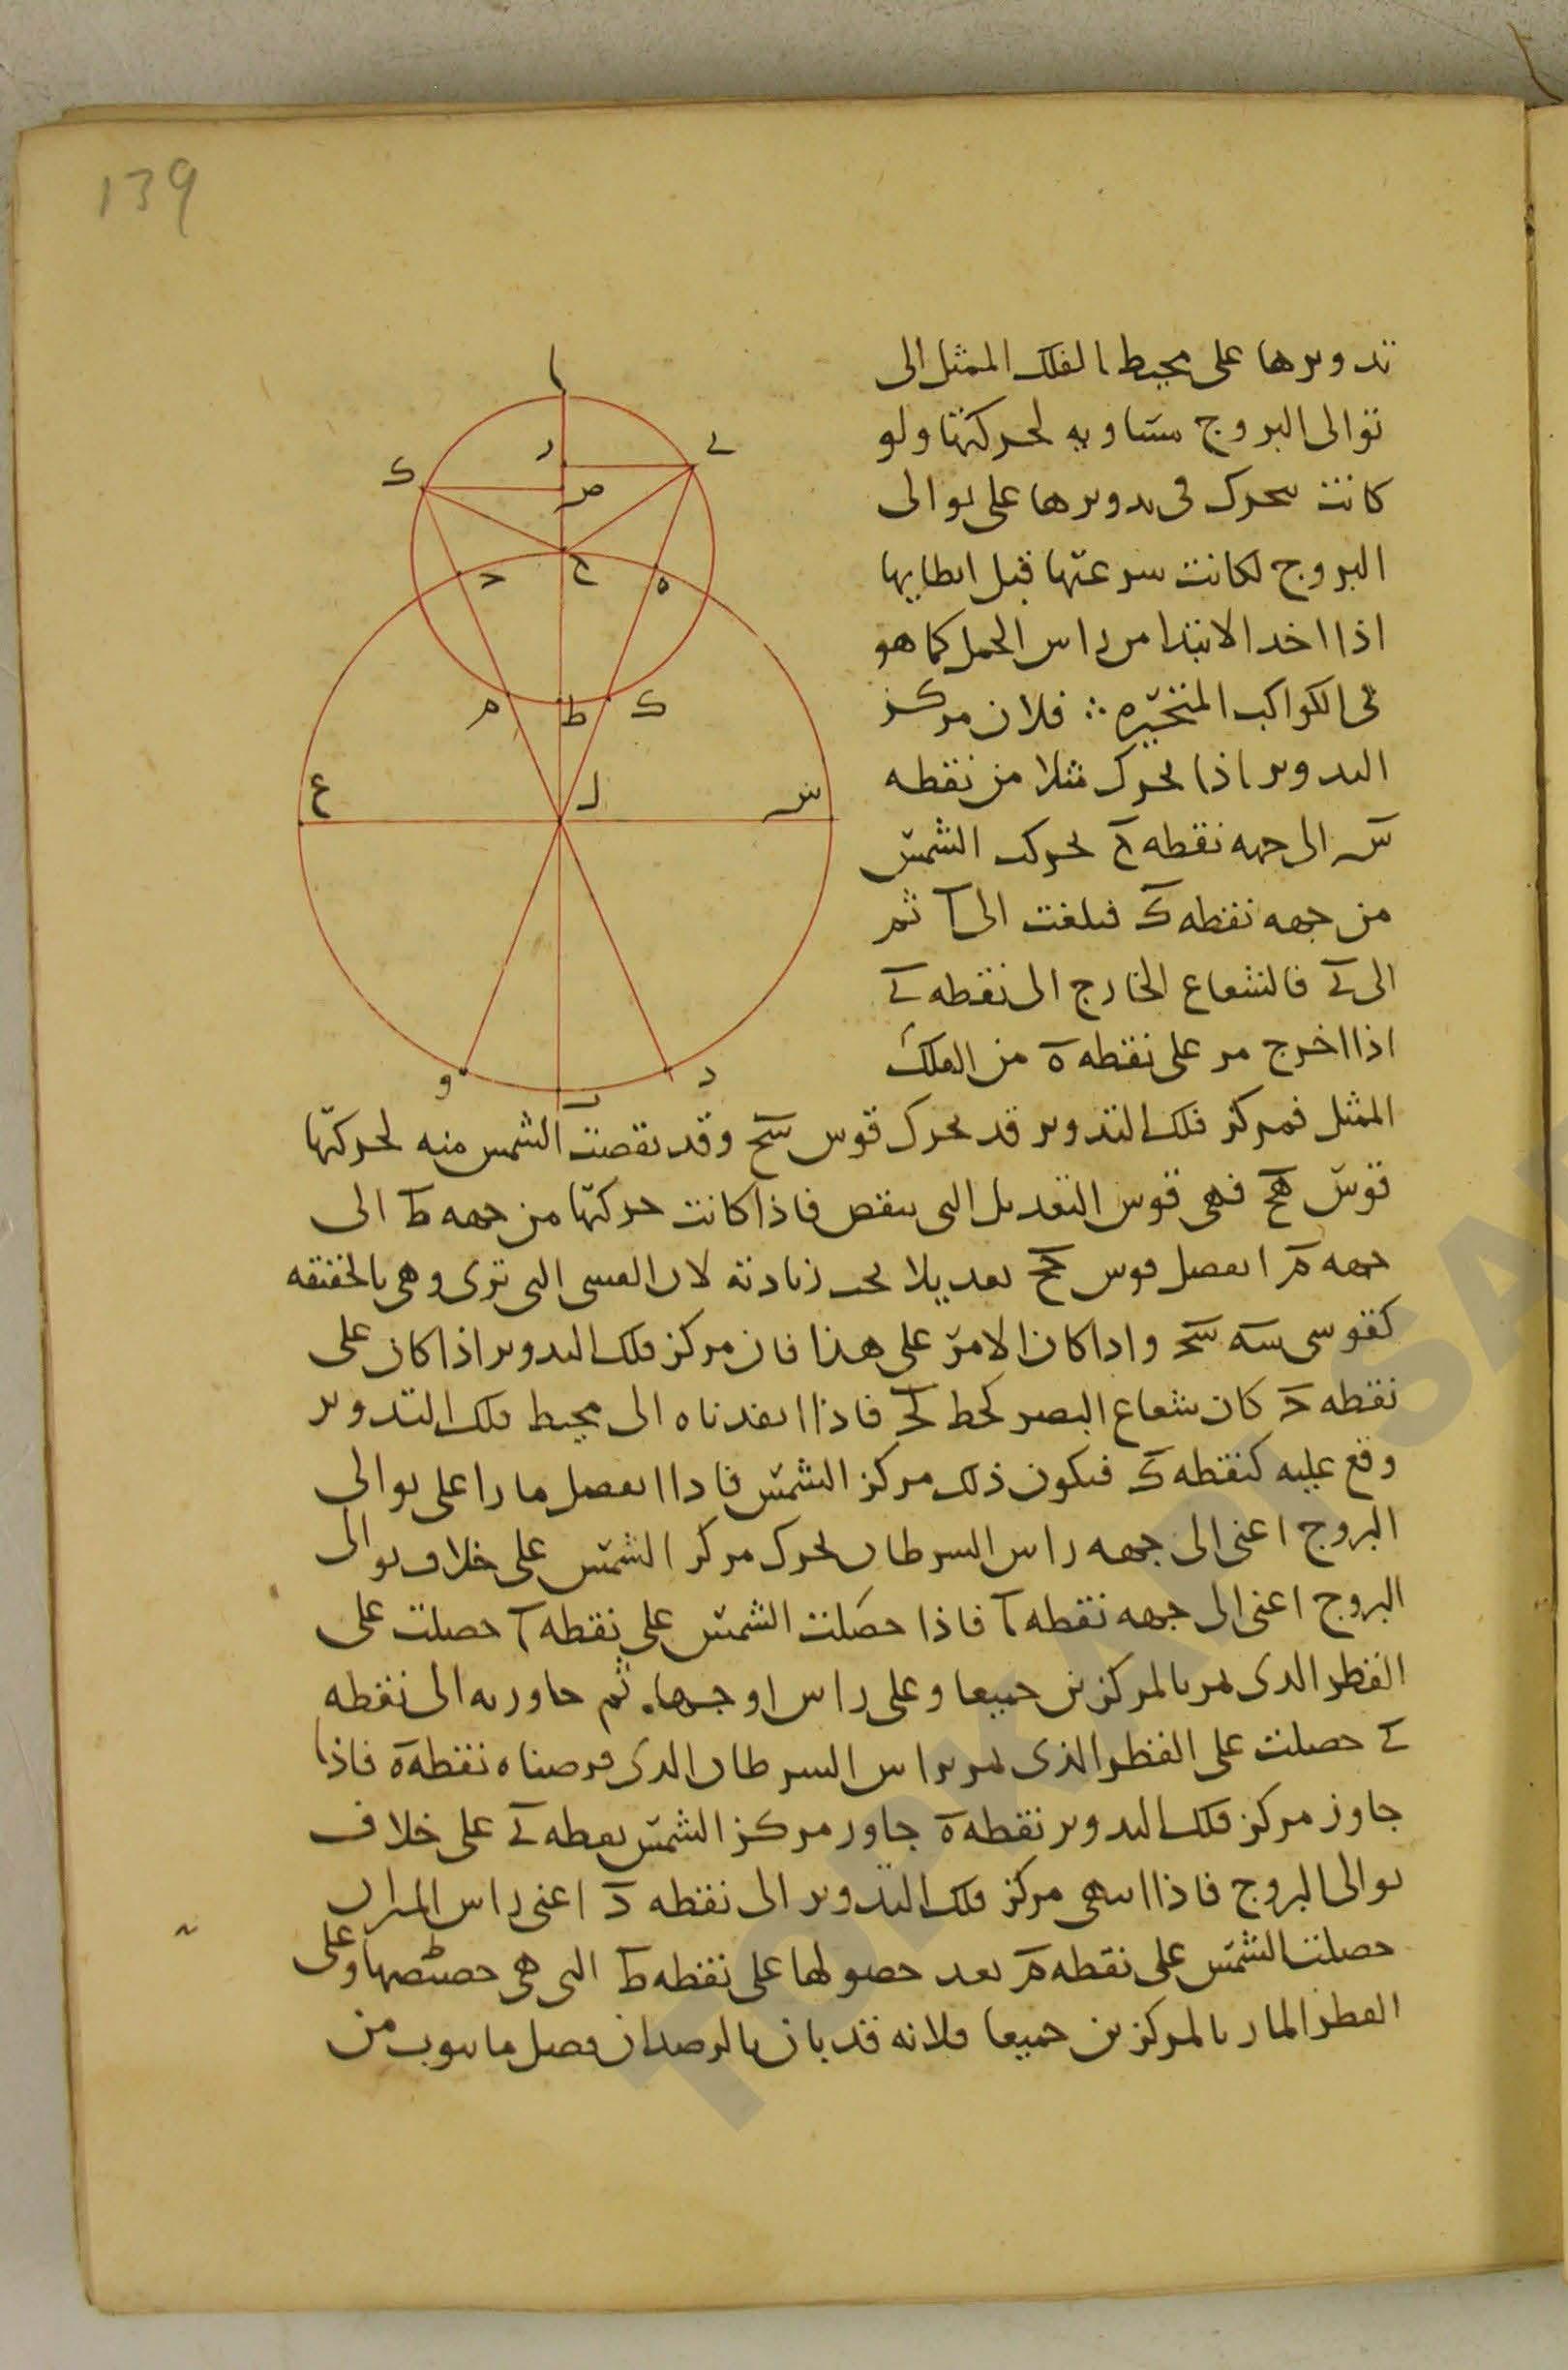 139
تدويرها على محيط الفلك الممثل الى
توالى البروج مساويه لحركتها ولو
كانت تتحرك فى تدويرها على توالى
البروج لكانت سرعتها قبل ابطايها
اذا اخذ الابتدا من راس الحمل كما هو
فى الكواكب المتحيّره ∴ فلان مركز
التدوير اذا تحرك مثلا من نقطه
س الى جهه نقطه ح تحركت الشمس
من جهه نقطه ك فبلغت الى ا ثم
الى ى فالشعاع الخارج الى نقطه ى
اذا اخرج مر على نقطه ه من الفلك
الممثل فمركز فلك التدوير قد تحرك قوس سح وقد نقصت الشمس منه لحركتها
قوس هح فهى قوس التعديل التى تنقص فاذا كانت حركتها من جهه ط الى
جهه م انفصل قوس حح تعديلا تحب زيادته لان القسى التى ترى وهى بالحقيقه
كقوسى سه سح واذا كان الامر على هذا فان مركز فلك التدوير اذا كان على
نقطه ح كان شعاع البصر كخط لح فاذا انفذناه الى محيط فلك التدوير
وقع عليه كنقطه ك فيكون ذلك مركز الشمس فاذا انفصل مارا على توالى
البروج اعنى الى جهه راس السرطان تحرك مركز الشمس على خلاف توالى
البروج اعنى الى جهه نقطه ا فاذا حصلت الشمس على نقطه ا حصلت على
القطر الذى يمر بالمركزين جميعا وعلى راس اوجها. ثم جاورته الى نقطه
ى حصلت على القطر الذى يمر براس السرطان الذى فرضناه نقطه ه فاذا
جاوز مركز فلك التدوير نقطه ه جاوز مركز الشمس نقطه ى على خلاف
توالى البروج فاذا انتهى مركز فلك التدوير الى نقطه د اعنى راس الميزان
حصلت الشمس على نقطه م بعد حصولها على نقطه ط التى هى حضيضها وعلى
القطر المار بالمركزين جميعا ولانه قد بان بالرصد ان فصل ما ينوب من
ا
ر
ى
ك
ص
ح
ح
ه
م
ط
ك
ع
ل
س
و
ب
د